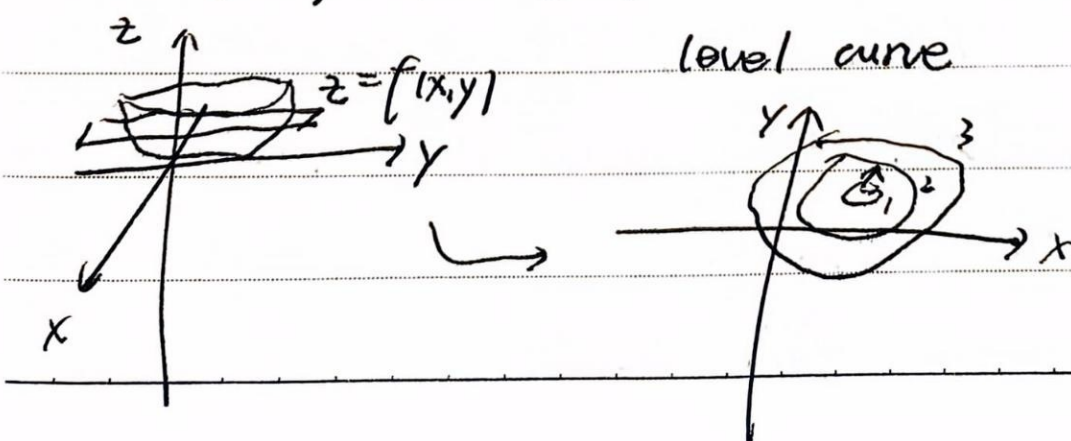 z
z=f(x,y)
y
x
level curve
y
3
2
1
x